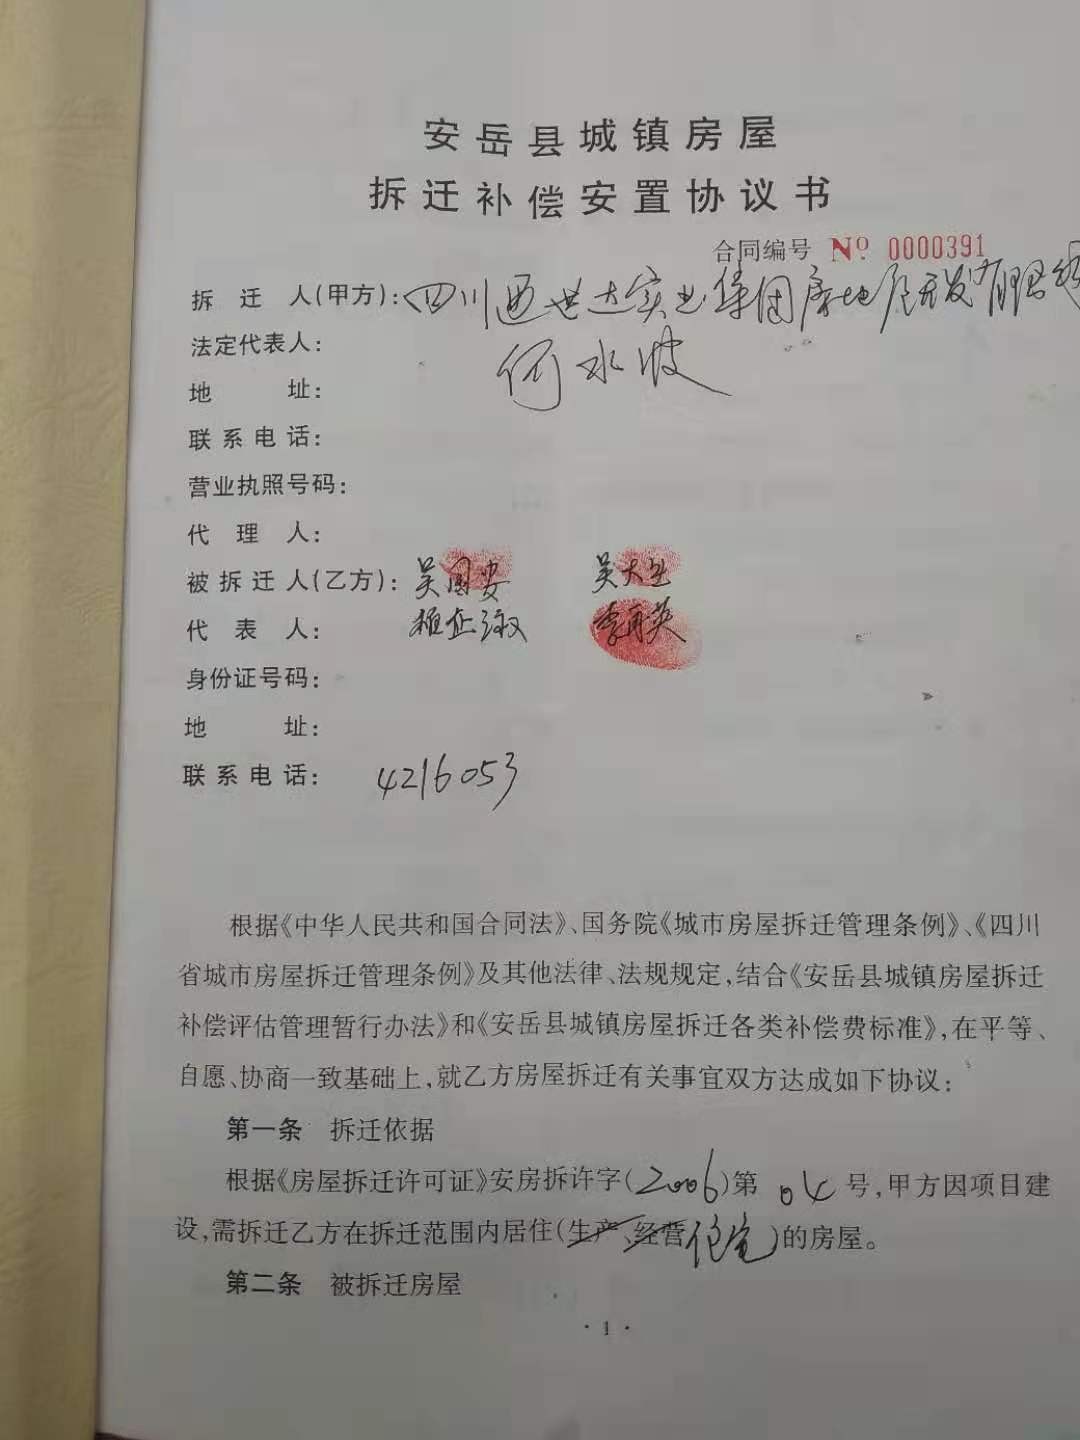 安岳县城镇房屋
拆迁补偿安置协议书
合同编号 Nº 0000391
拆迁人(甲方): 四川西世达实业集团房地产开发有限
法定代表人:
何水波
地址:
联系电话:
营业执照号码:
代理人:
被拆迁人(乙方): 吴国安 吴大
代表人: 李再英
身份证号码:
地址:
联系电话: 4216053
根据《中华人民共和国合同法》、国务院《城市房屋拆迁管理条例》、《四川
省城市房屋拆迁管理条例》及其他法律、法规规定,结合《安岳县城镇房屋拆迁
补偿评估管理暂行办法》和《安岳县城镇房屋拆迁各类补偿费标准》,在平等、
自愿、协商一致基础上,就乙方房屋拆迁有关事宜双方达成如下协议:
第一条 拆迁依据
根据《房屋拆迁许可证》安房拆许字(2006)第 04 号,甲方因项目建
设,需拆迁乙方在拆迁范围内居住(生产、经营住宅)的房屋。
第二条 被拆迁房屋
· 1 ·